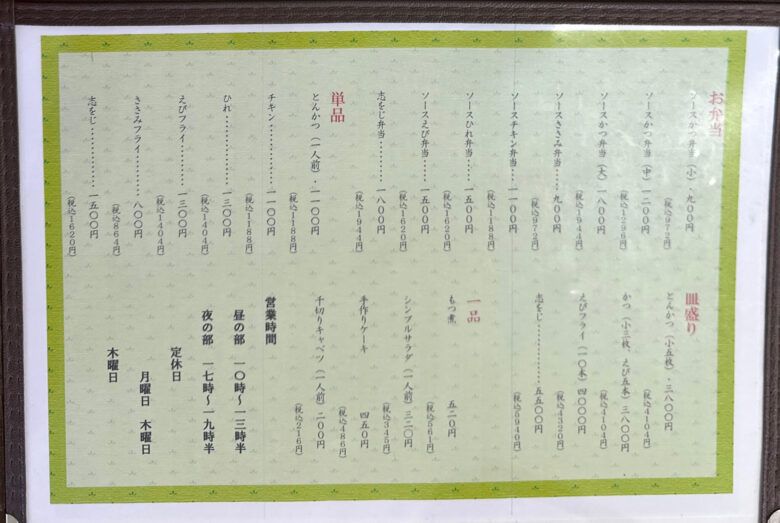 お弁当
ソースかつ弁当（小）・九〇〇円
（税込972円）
ソースかつ弁当（中）一二〇〇円
（税込1296円）
ソースかつ弁当（大）一八〇〇円
（税込1944円）
ソースささみ弁当・・・・九〇〇円
（税込972円）
ソースチキン弁当・・・一一〇〇円
（税込1188円）
ソースひれ弁当・・・・一五〇〇円
（税込1620円）
ソースえび弁当・・・・一五〇〇円
（税込1620円）
志をじ弁当・・・・・・・・一八〇〇円
（税込1944円）
単品
とんかつ（一人前）・一一〇〇円
（税込1188円）
チキン・・・・・・・・・・・一一〇〇円
（税込1188円）
ひれ・・・・・・・・・・・・一三〇〇円
（税込1404円）
えびフライ・・・・・・・一三〇〇円
（税込1404円）
ささみフライ・・・・・・・八〇〇円
（税込864円）
志をじ・・・・・・・・・・・一五〇〇円
（税込1620円）
皿盛り
とんかつ（小五枚）・三八〇〇円
（税込4104円）
かつ（小三枚、えび五本）三八〇〇円
（税込4104円）
えびフライ（一〇本）四〇〇〇円
（税込4320円）
志をじ・・・・・・・・・・・五五〇〇円
（税込5940円）
一品
もつ煮　五二〇円
（税込561円）
シンプルサラダ（一人前）三二〇円
（税込345円）
手作りケーキ　四五〇円
（税込486円）
千切りキャベツ（一人前）二〇〇円
（税込216円）
営業時間
昼の部　一〇時〜一三時半
夜の部　一七時〜一九時半
定休日
月曜日　木曜日
木曜日